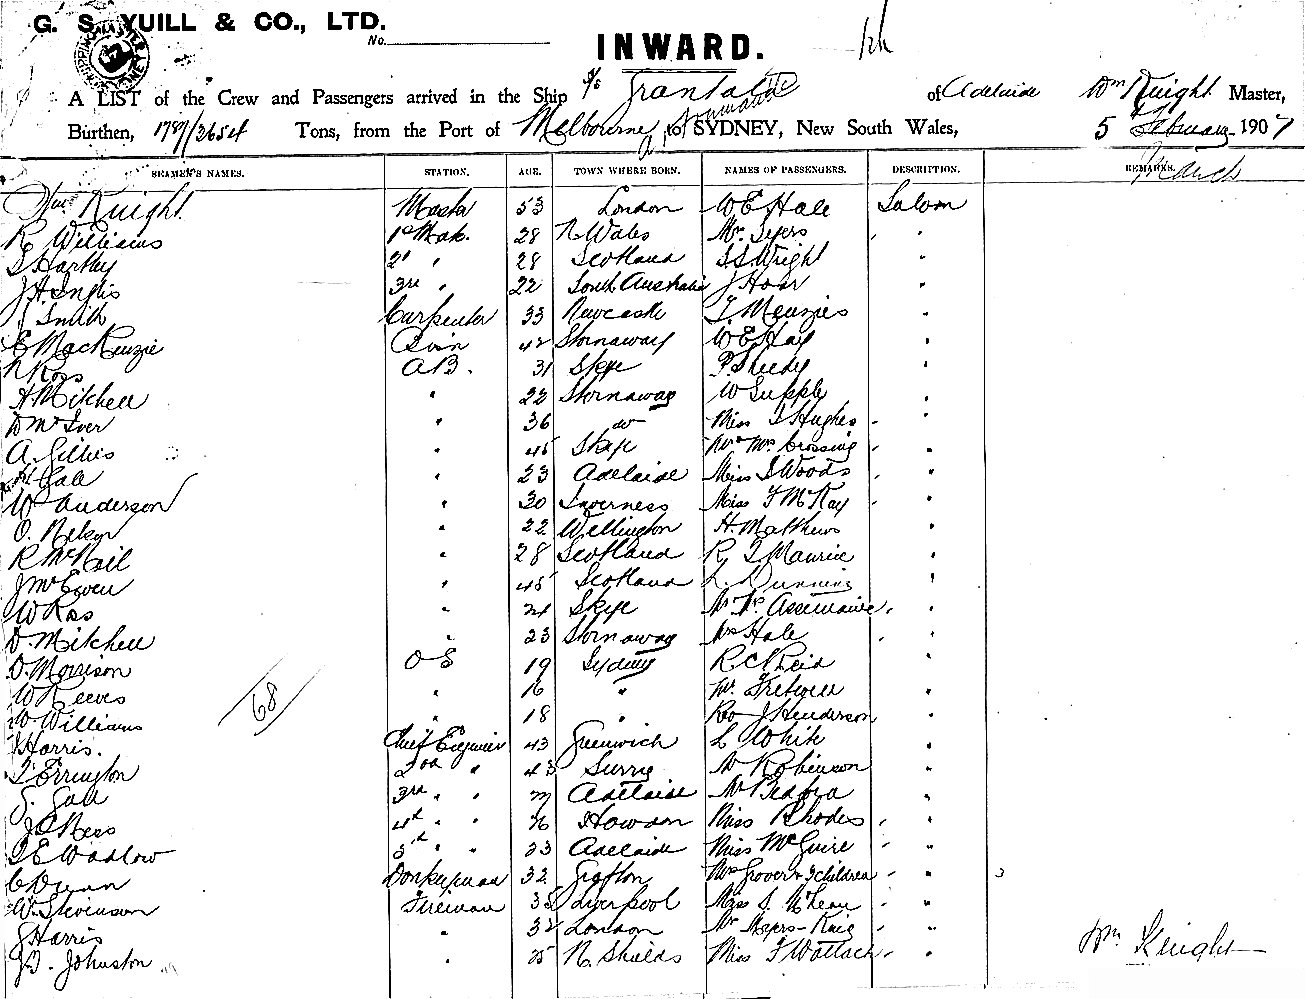 G. S. YUILL & CO., LTD.
No.
INWARD.
A LIST of the Crew and Passengers arrived in the Ship S/S Grantala of Adelaide Wm Knight Master,
Burthen, 1797/3654 Tons, from the Port of Melbourne to SYDNEY, New South Wales, 5 February 1907
March
SEAMEN'S NAMES. STATION. AGE. TOWN WHERE BORN. NAMES OF PASSENGERS. DESCRIPTION. REMARKS.
Wm Knight Master 53 London W E Hale Saloon
R Williams 1st Mate 28 N Wales Mr Syers "
S Hartley 2d " 28 Scotland S S Wright "
J H Inglis 3rd " 22 South Australia J Hoar "
J Smith Carpenter 33 Newcastle T Menzies "
E MacKenzie 42 Stornaway W E Hay "
N Ross A B. 31 Skye P Sheedy "
H Mitchell " 22 Stornaway W Supply "
D McIver " 36 do Miss S Hughes "
A. Gillies " 45 Skye Mr Mrs Crossing "
Gale " 23 Adelaide Miss S Woods "
W Anderson " 30 Inverness Miss F McKay "
O. " 22 Wellington H. Matthews "
R McNeil " 28 Scotland R. T Maurice "
J McEwen " 45 Scotland L. Dunning "
W Ross " 21 Skye Mr Mrs "
D. Mitchell " 23 Stornaway Mrs Hale "
D. Morrison O S 19 Sydney R C Reid "
W Reeves " 16 " W. Fretwell "
W Williams " 18 " Rev J Henderson "
68
Harris. Chief Engineer 43 Greenwich L White "
T Errington 2nd " 43 Surrey W Robinson "
S. Gall 3rd " " Adelaide Mr Bedford "
J C Ness 4th " " 26 Howdon Miss Rhodes "
D E Wadlow 5th " " 23 Adelaide Miss McGuire "
C Donkeyman 32 Grafton Mrs Grover & 3 children " 3
W. Stevenson Fireman 38 Liverpool Miss S. McLean "
J Harris " 32 London Mr Myers-Knig "
J. D. Johnston " 25 N. Shields Miss F Wallach "
Wm Knight